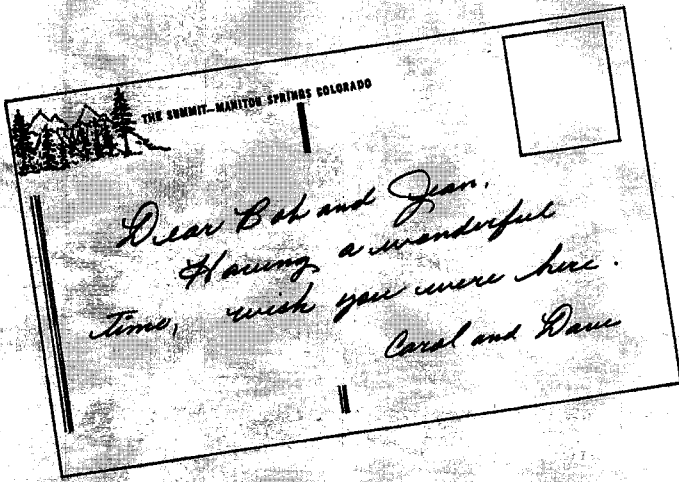 THE SUMMIT—MANITOU SPRINGS COLORADO
Dear Bob and Jean,
Having a wonderful
time, wish you were here.
Carol and Dave